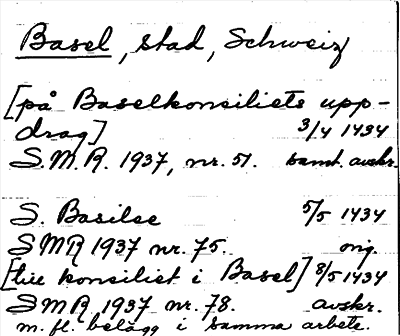 Basel, stad, Schweiz
[på Baselkonsiliets upp-
drag] 3/4 1434
S.M.R. 1937, nr. 51. samt. avskr.
S. Basilee 5/5 1434
SMR 1937 nr. 75. orig.
[till konsiliet i Basel] 8/5 1434
SMR 1937 nr. 78. avskr.
m. fl. belägg i samma arbete.